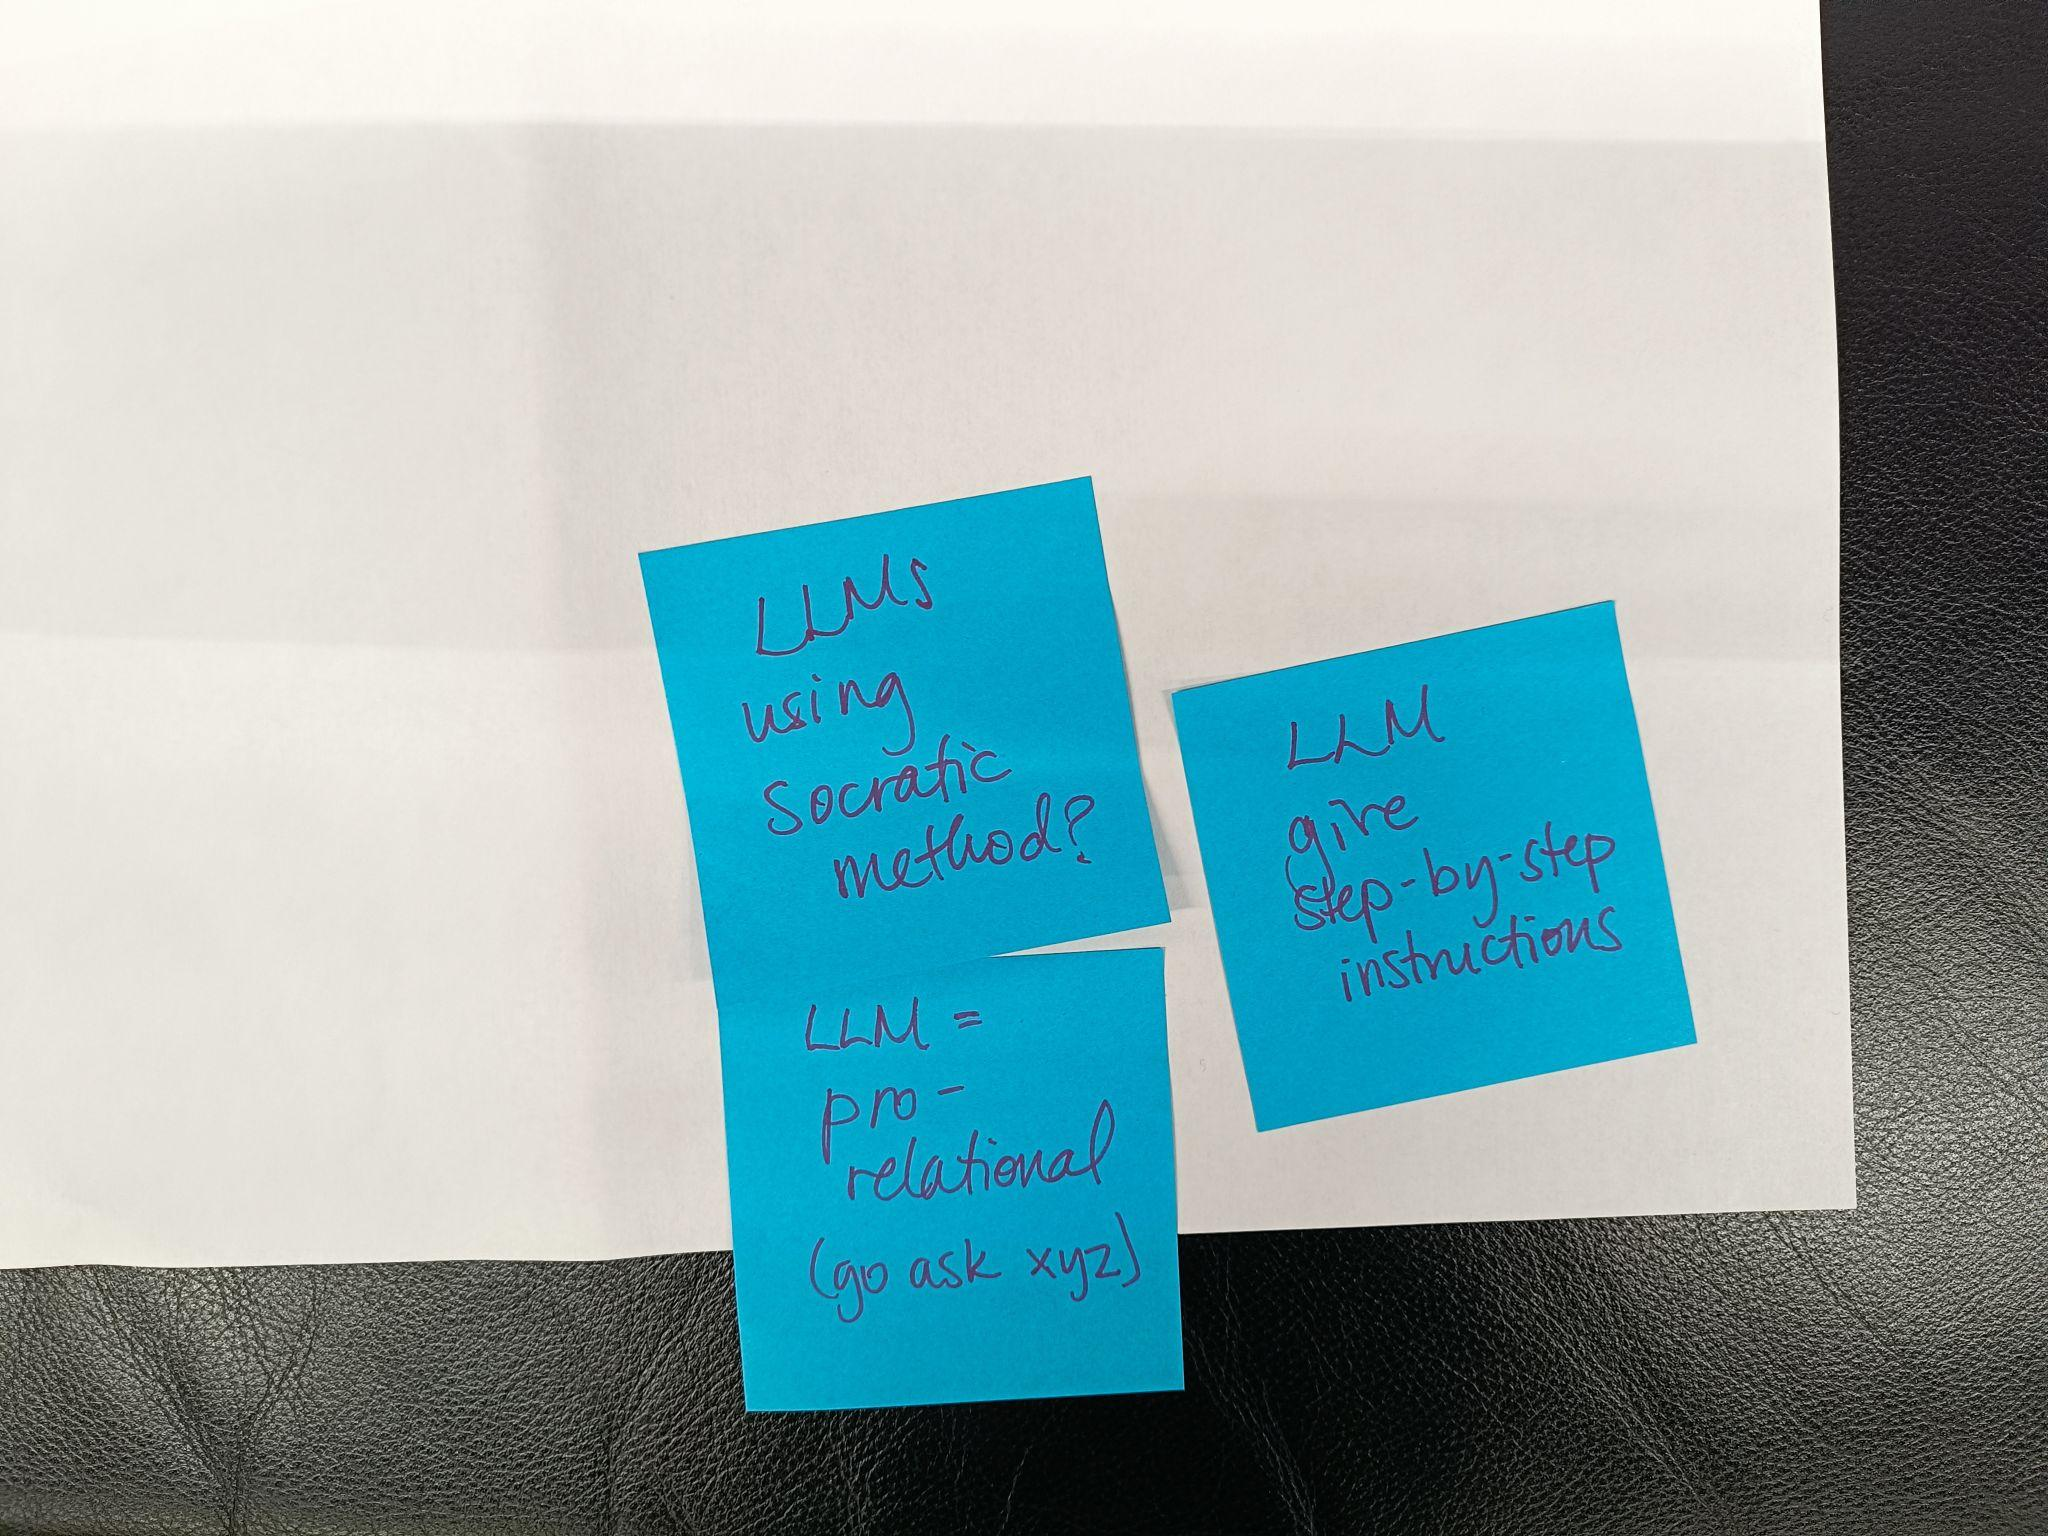 LLMs
using
Socratic
method?
LLM =
pro-
relational
(go ask xyz)
LLM
give
step-by-step
instructions